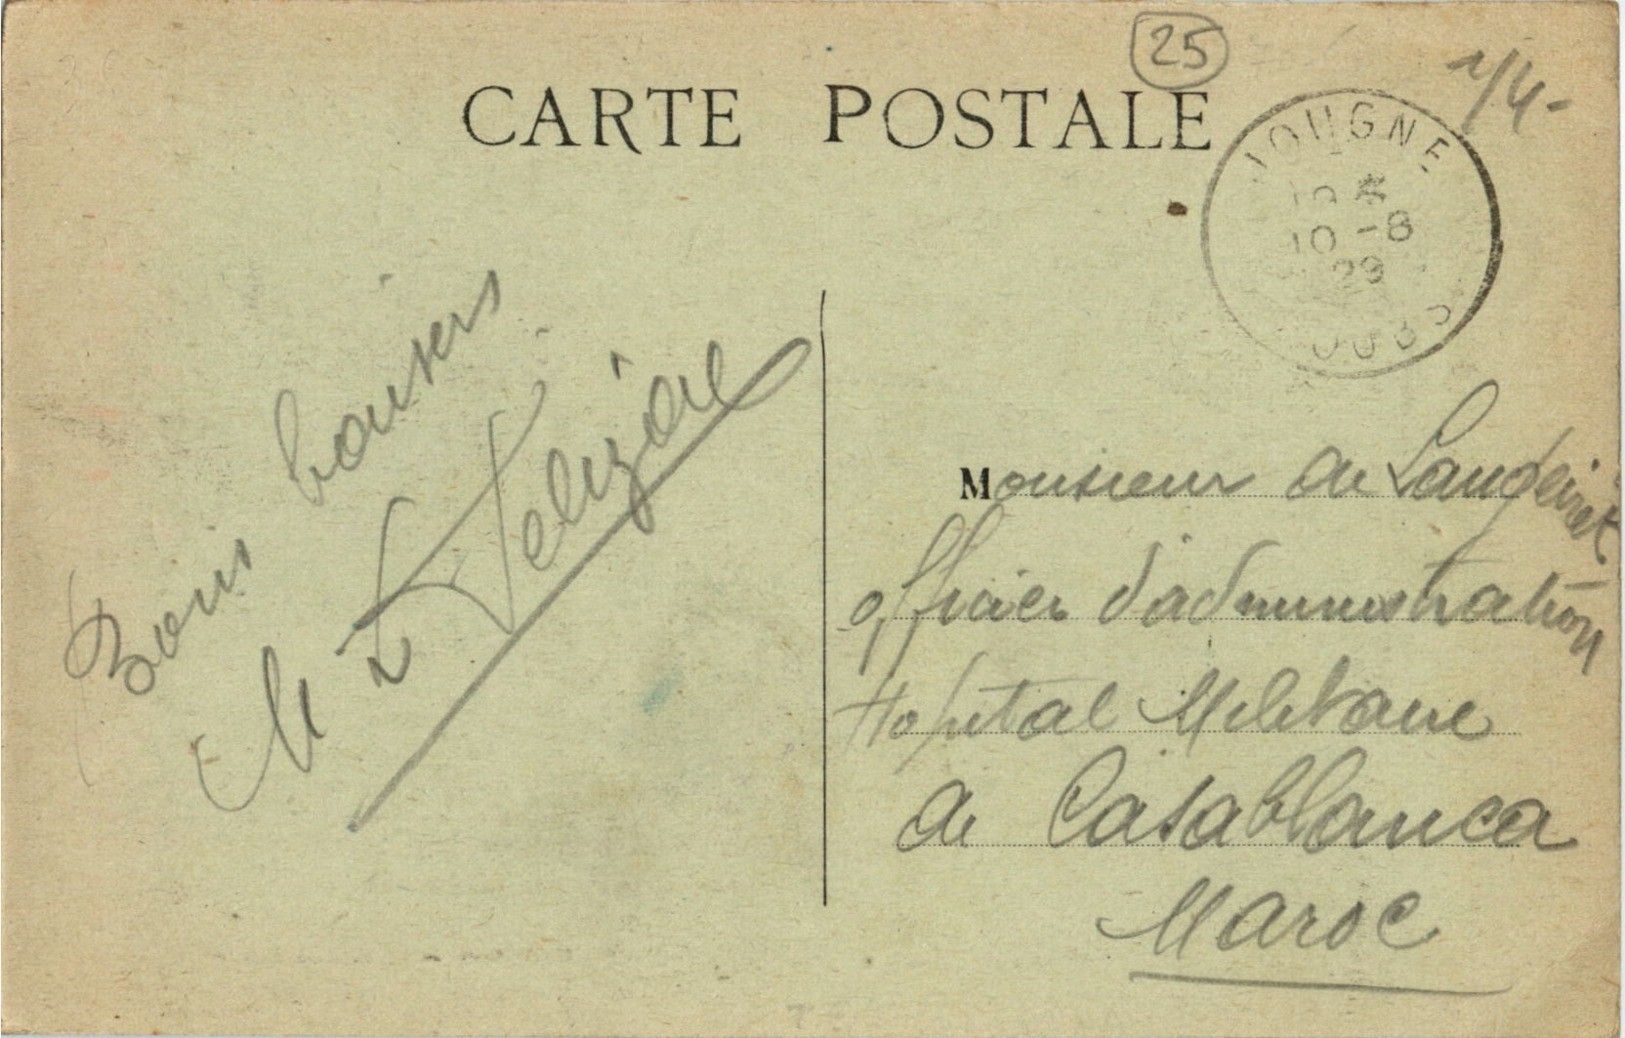 25
1/4-
CARTE POSTALE
JOUGNE
10 *
10 -8
29
DOUBS
Bons baisers
M
Monsieur de
officier d'administration
Hopital Militaire
de Casablanca
Maroc